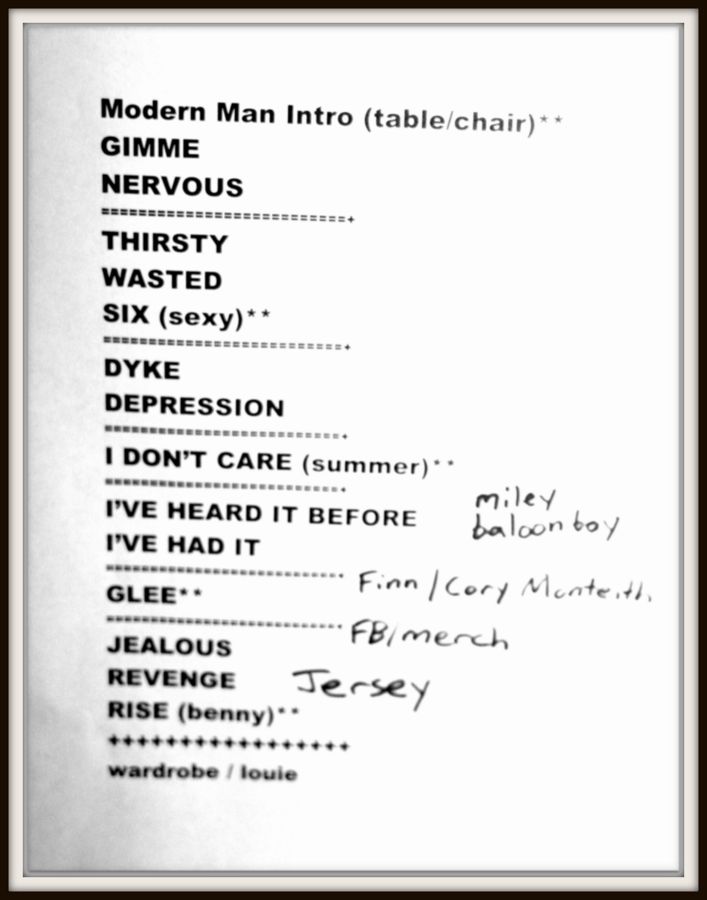 Modern Man Intro (table/chair)**
GIMME
NERVOUS
==========================+
THIRSTY
WASTED
SIX (sexy)**
==========================+
DYKE
DEPRESSION
==========================+
I DON'T CARE (summer)**
==========================+
I'VE HEARD IT BEFORE miley
baloon boy
I'VE HAD IT
==========================
Finn/Cory Monteith
GLEE**
==========================
FB/merch
JEALOUS
REVENGE Jersey
RISE (benny)**
+++++++++++++++++
wardrobe / louie